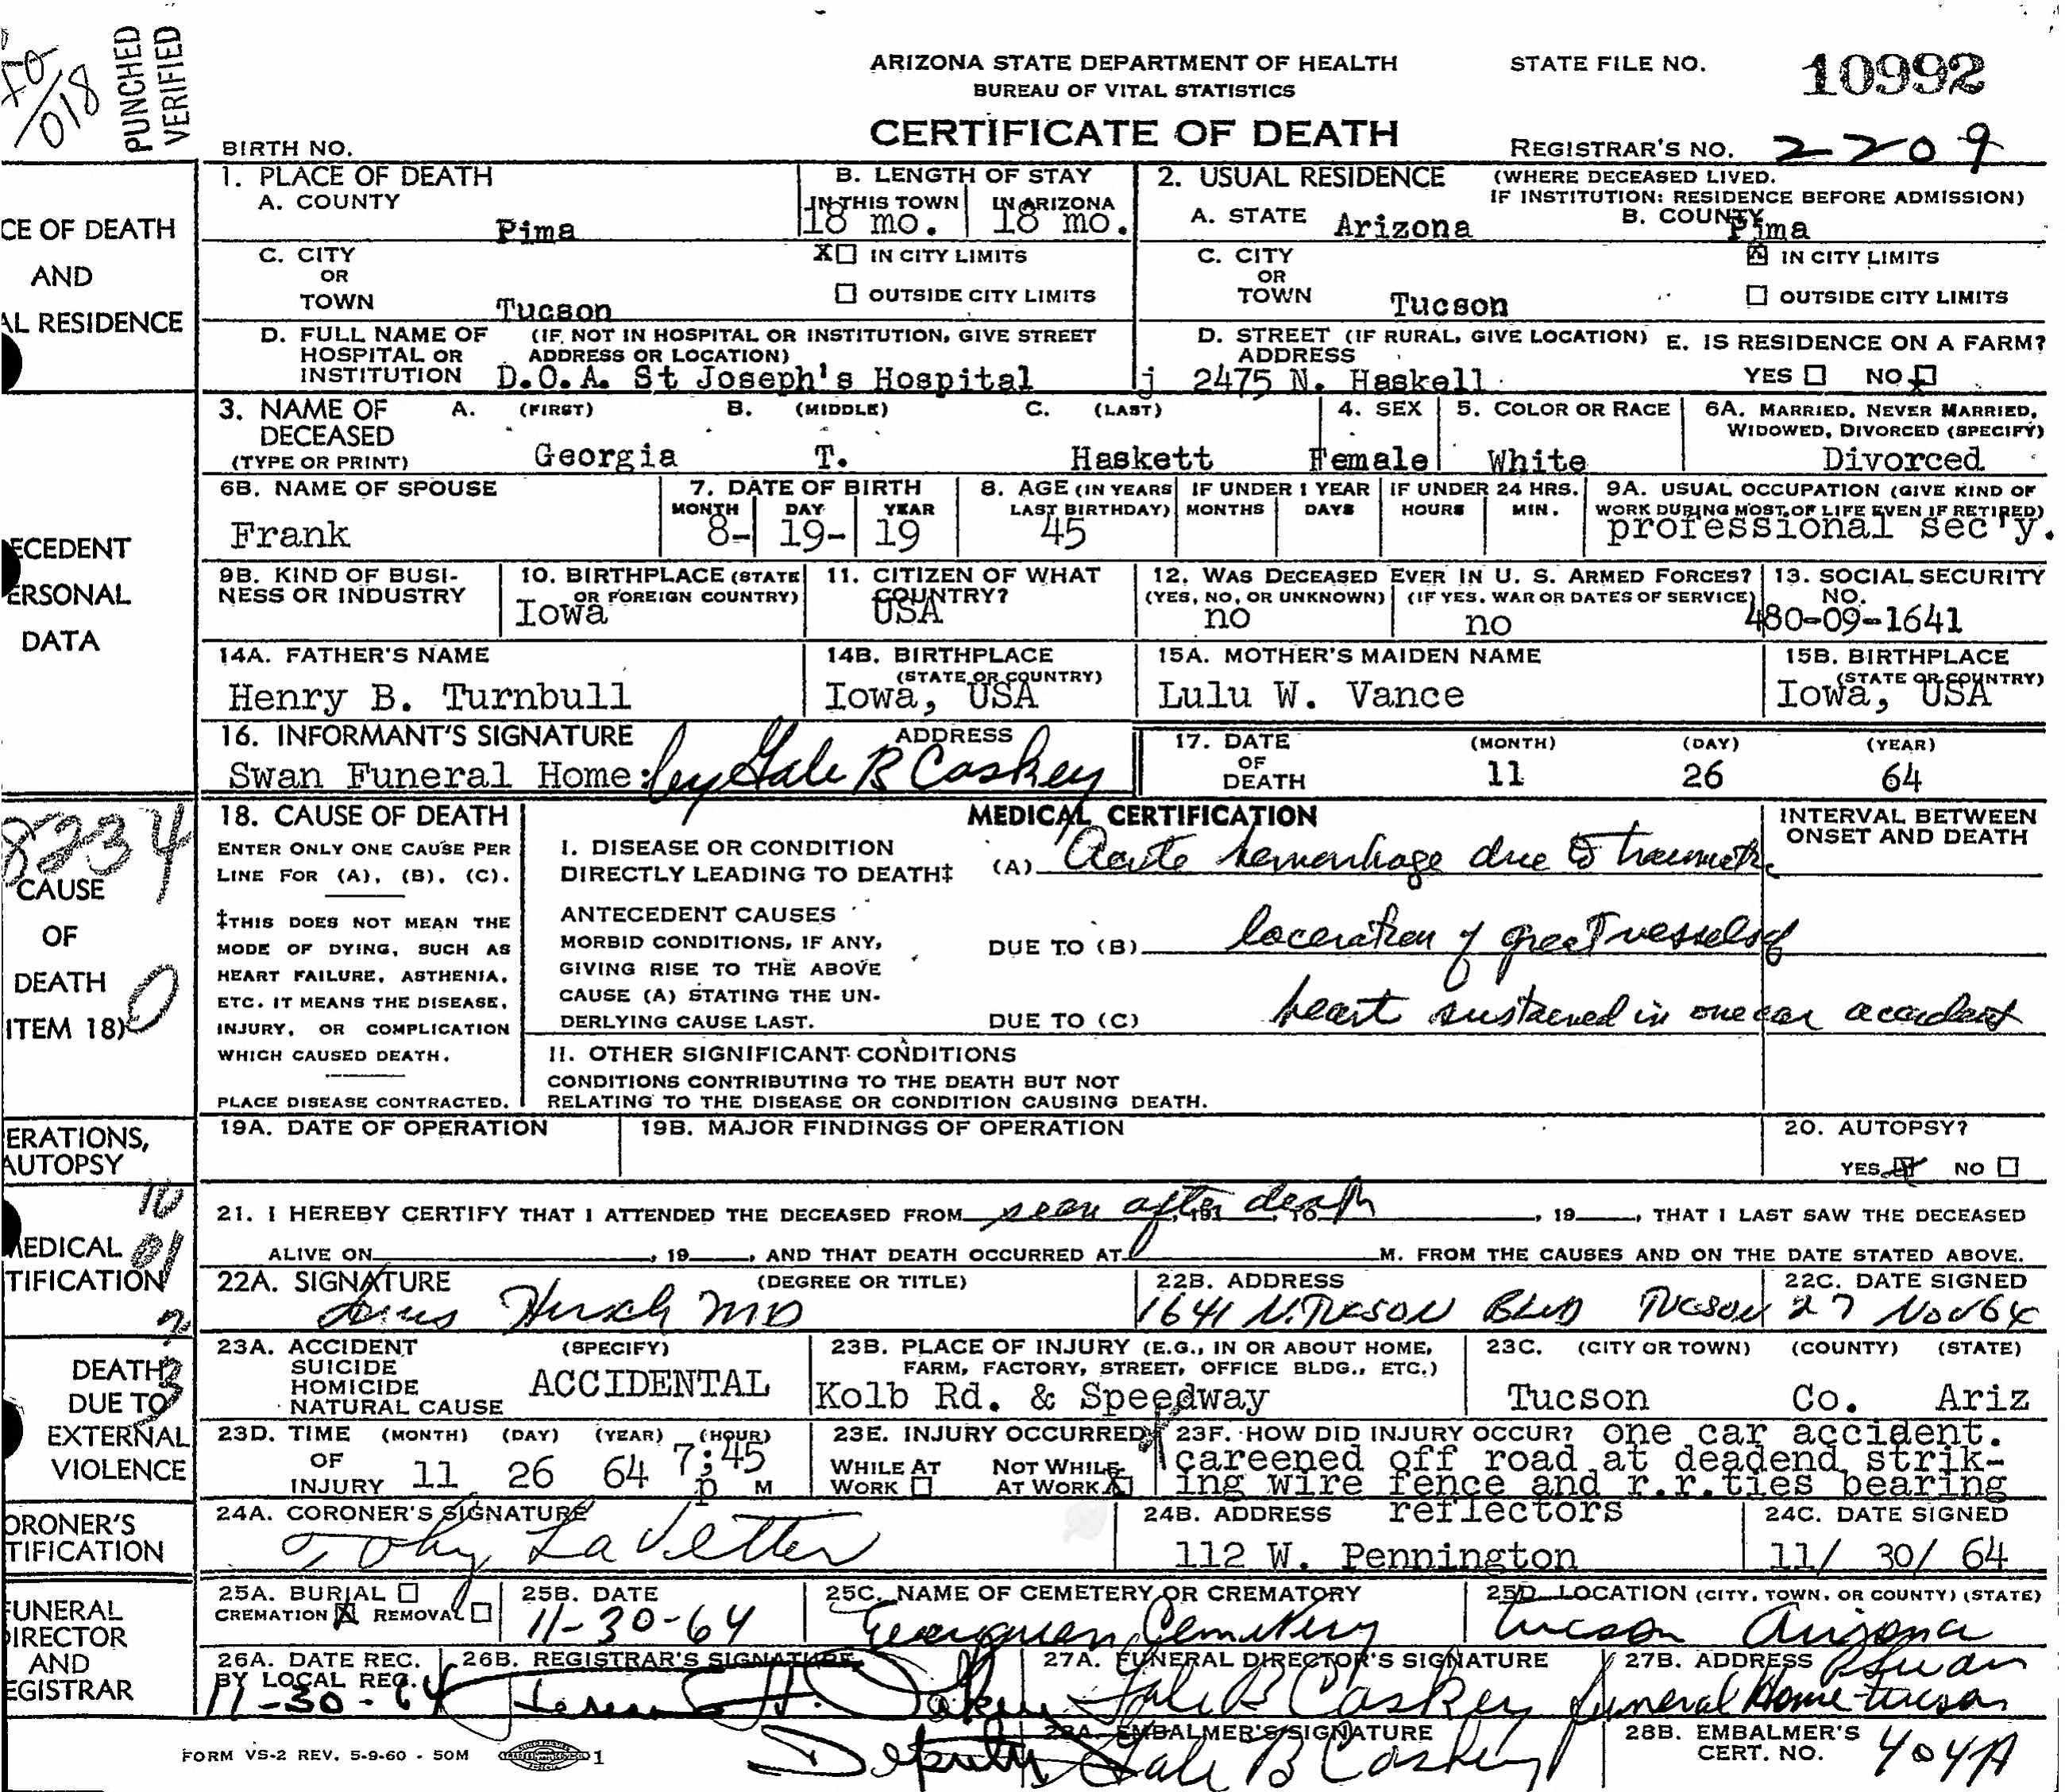 PUNCHED
VERIFIED
ARIZONA STATE DEPARTMENT OF HEALTH
BUREAU OF VITAL STATISTICS
CERTIFICATE OF DEATH
STATE FILE NO. 10992
REGISTRAR'S NO. 2209
BIRTH NO.
CE OF DEATH
AND
AL RESIDENCE
1. PLACE OF DEATH
A. COUNTY Pima
B. LENGTH OF STAY
IN THIS TOWN 18 mo.
IN ARIZONA 18 mo.
2. USUAL RESIDENCE (WHERE DECEASED LIVED.
IF INSTITUTION: RESIDENCE BEFORE ADMISSION)
A. STATE Arizona
B. COUNTY Pima
C. CITY OR TOWN Tucson
X☐ IN CITY LIMITS
☐ OUTSIDE CITY LIMITS
C. CITY OR TOWN Tucson
☒ IN CITY LIMITS
☐ OUTSIDE CITY LIMITS
D. FULL NAME OF HOSPITAL OR INSTITUTION (IF NOT IN HOSPITAL OR INSTITUTION, GIVE STREET ADDRESS OR LOCATION)
D.O.A. St Joseph's Hospital
D. STREET ADDRESS (IF RURAL, GIVE LOCATION)
j 2475 N. Haskell
E. IS RESIDENCE ON A FARM?
YES ☐ NO ☒
ECEDENT
ERSONAL
DATA
3. NAME OF DECEASED (TYPE OR PRINT)
A. (FIRST) Georgia
B. (MIDDLE) T.
C. (LAST) Haskett
4. SEX Female
5. COLOR OR RACE White
6A. MARRIED, NEVER MARRIED, WIDOWED, DIVORCED (SPECIFY)
Divorced
6B. NAME OF SPOUSE
Frank
7. DATE OF BIRTH
MONTH DAY YEAR
8- 19- 19
8. AGE (IN YEARS LAST BIRTHDAY) 45
IF UNDER 1 YEAR MONTHS DAYS
IF UNDER 24 HRS. HOURS MIN.
9A. USUAL OCCUPATION (GIVE KIND OF WORK DURING MOST OF LIFE EVEN IF RETIRED)
professional sec'y.
9B. KIND OF BUSINESS OR INDUSTRY
10. BIRTHPLACE (STATE OR FOREIGN COUNTRY)
Iowa
11. CITIZEN OF WHAT COUNTRY?
USA
12. WAS DECEASED EVER IN U. S. ARMED FORCES?
(YES, NO, OR UNKNOWN) no
(IF YES, WAR OR DATES OF SERVICE) no
13. SOCIAL SECURITY NO.
480-09-1641
14A. FATHER'S NAME
Henry B. Turnbull
14B. BIRTHPLACE (STATE OR COUNTRY)
Iowa, USA
15A. MOTHER'S MAIDEN NAME
Lulu W. Vance
15B. BIRTHPLACE (STATE OR COUNTRY)
Iowa, USA
16. INFORMANT'S SIGNATURE ADDRESS
Swan Funeral Home: by Gale B Caskey
17. DATE OF DEATH
(MONTH) (DAY) (YEAR)
11 26 64
8234
CAUSE
OF
DEATH
ITEM 18)
18. CAUSE OF DEATH
ENTER ONLY ONE CAUSE PER LINE FOR (A), (B), (C).
‡THIS DOES NOT MEAN THE MODE OF DYING, SUCH AS HEART FAILURE, ASTHENIA, ETC. IT MEANS THE DISEASE, INJURY, OR COMPLICATION WHICH CAUSED DEATH.
PLACE DISEASE CONTRACTED.
MEDICAL CERTIFICATION
INTERVAL BETWEEN ONSET AND DEATH
I. DISEASE OR CONDITION DIRECTLY LEADING TO DEATH‡
(A) Acute hemorrhage due to traumatic
ANTECEDENT CAUSES
MORBID CONDITIONS, IF ANY, GIVING RISE TO THE ABOVE CAUSE (A) STATING THE UNDERLYING CAUSE LAST.
DUE TO (B) laceration of great vessels of
DUE TO (C) heart sustained in one car accident
II. OTHER SIGNIFICANT CONDITIONS
CONDITIONS CONTRIBUTING TO THE DEATH BUT NOT RELATING TO THE DISEASE OR CONDITION CAUSING DEATH.
ERATIONS,
AUTOPSY
19A. DATE OF OPERATION
19B. MAJOR FINDINGS OF OPERATION
20. AUTOPSY?
YES ☒ NO ☐
MEDICAL
TIFICATION
21. I HEREBY CERTIFY THAT I ATTENDED THE DECEASED FROM seen after death, 19 , TO , 19 , THAT I LAST SAW THE DECEASED
ALIVE ON , 19 , AND THAT DEATH OCCURRED AT M. FROM THE CAUSES AND ON THE DATE STATED ABOVE.
22A. SIGNATURE (DEGREE OR TITLE)
Hirsch MD
22B. ADDRESS
1641 N. TUCSON BLVD TUCSON
22C. DATE SIGNED
27 Nov 64
DEATH
DUE TO
EXTERNAL
VIOLENCE
23A. ACCIDENT SUICIDE HOMICIDE NATURAL CAUSE (SPECIFY)
ACCIDENTAL
23B. PLACE OF INJURY (E.G., IN OR ABOUT HOME, FARM, FACTORY, STREET, OFFICE BLDG., ETC.)
Kolb Rd. & Speedway
23C. (CITY OR TOWN) (COUNTY) (STATE)
Tucson Co. Ariz
23D. TIME OF INJURY (MONTH) (DAY) (YEAR) (HOUR)
11 26 64 7;45 p M
23E. INJURY OCCURRED
WHILE AT WORK ☐ NOT WHILE AT WORK ☒
23F. HOW DID INJURY OCCUR? one car accident.
careened off road at deadend strik-
ing wire fence and r.r.ties bearing
reflectors
ORONER'S
TIFICATION
24A. CORONER'S SIGNATURE
Toby La Vetter
24B. ADDRESS
112 W. Pennington
24C. DATE SIGNED
11/ 30/ 64
FUNERAL
DIRECTOR
AND
EGISTRAR
25A. BURIAL ☐
CREMATION ☒ REMOVAL ☐
25B. DATE
11-30-64
25C. NAME OF CEMETERY OR CREMATORY
Evergreen Cemetery
25D. LOCATION (CITY, TOWN, OR COUNTY) (STATE)
Tucson Arizona
26A. DATE REC. BY LOCAL REG.
11-30-64
26B. REGISTRAR'S SIGNATURE
Deputy
27A. FUNERAL DIRECTOR'S SIGNATURE
Gale B Caskey
27B. ADDRESS Swan
Funeral Home-Tucson
28A. EMBALMER'S SIGNATURE
Gale B Caskey
28B. EMBALMER'S CERT. NO.
404A
FORM VS-2 REV. 5-9-60 - 50M
1